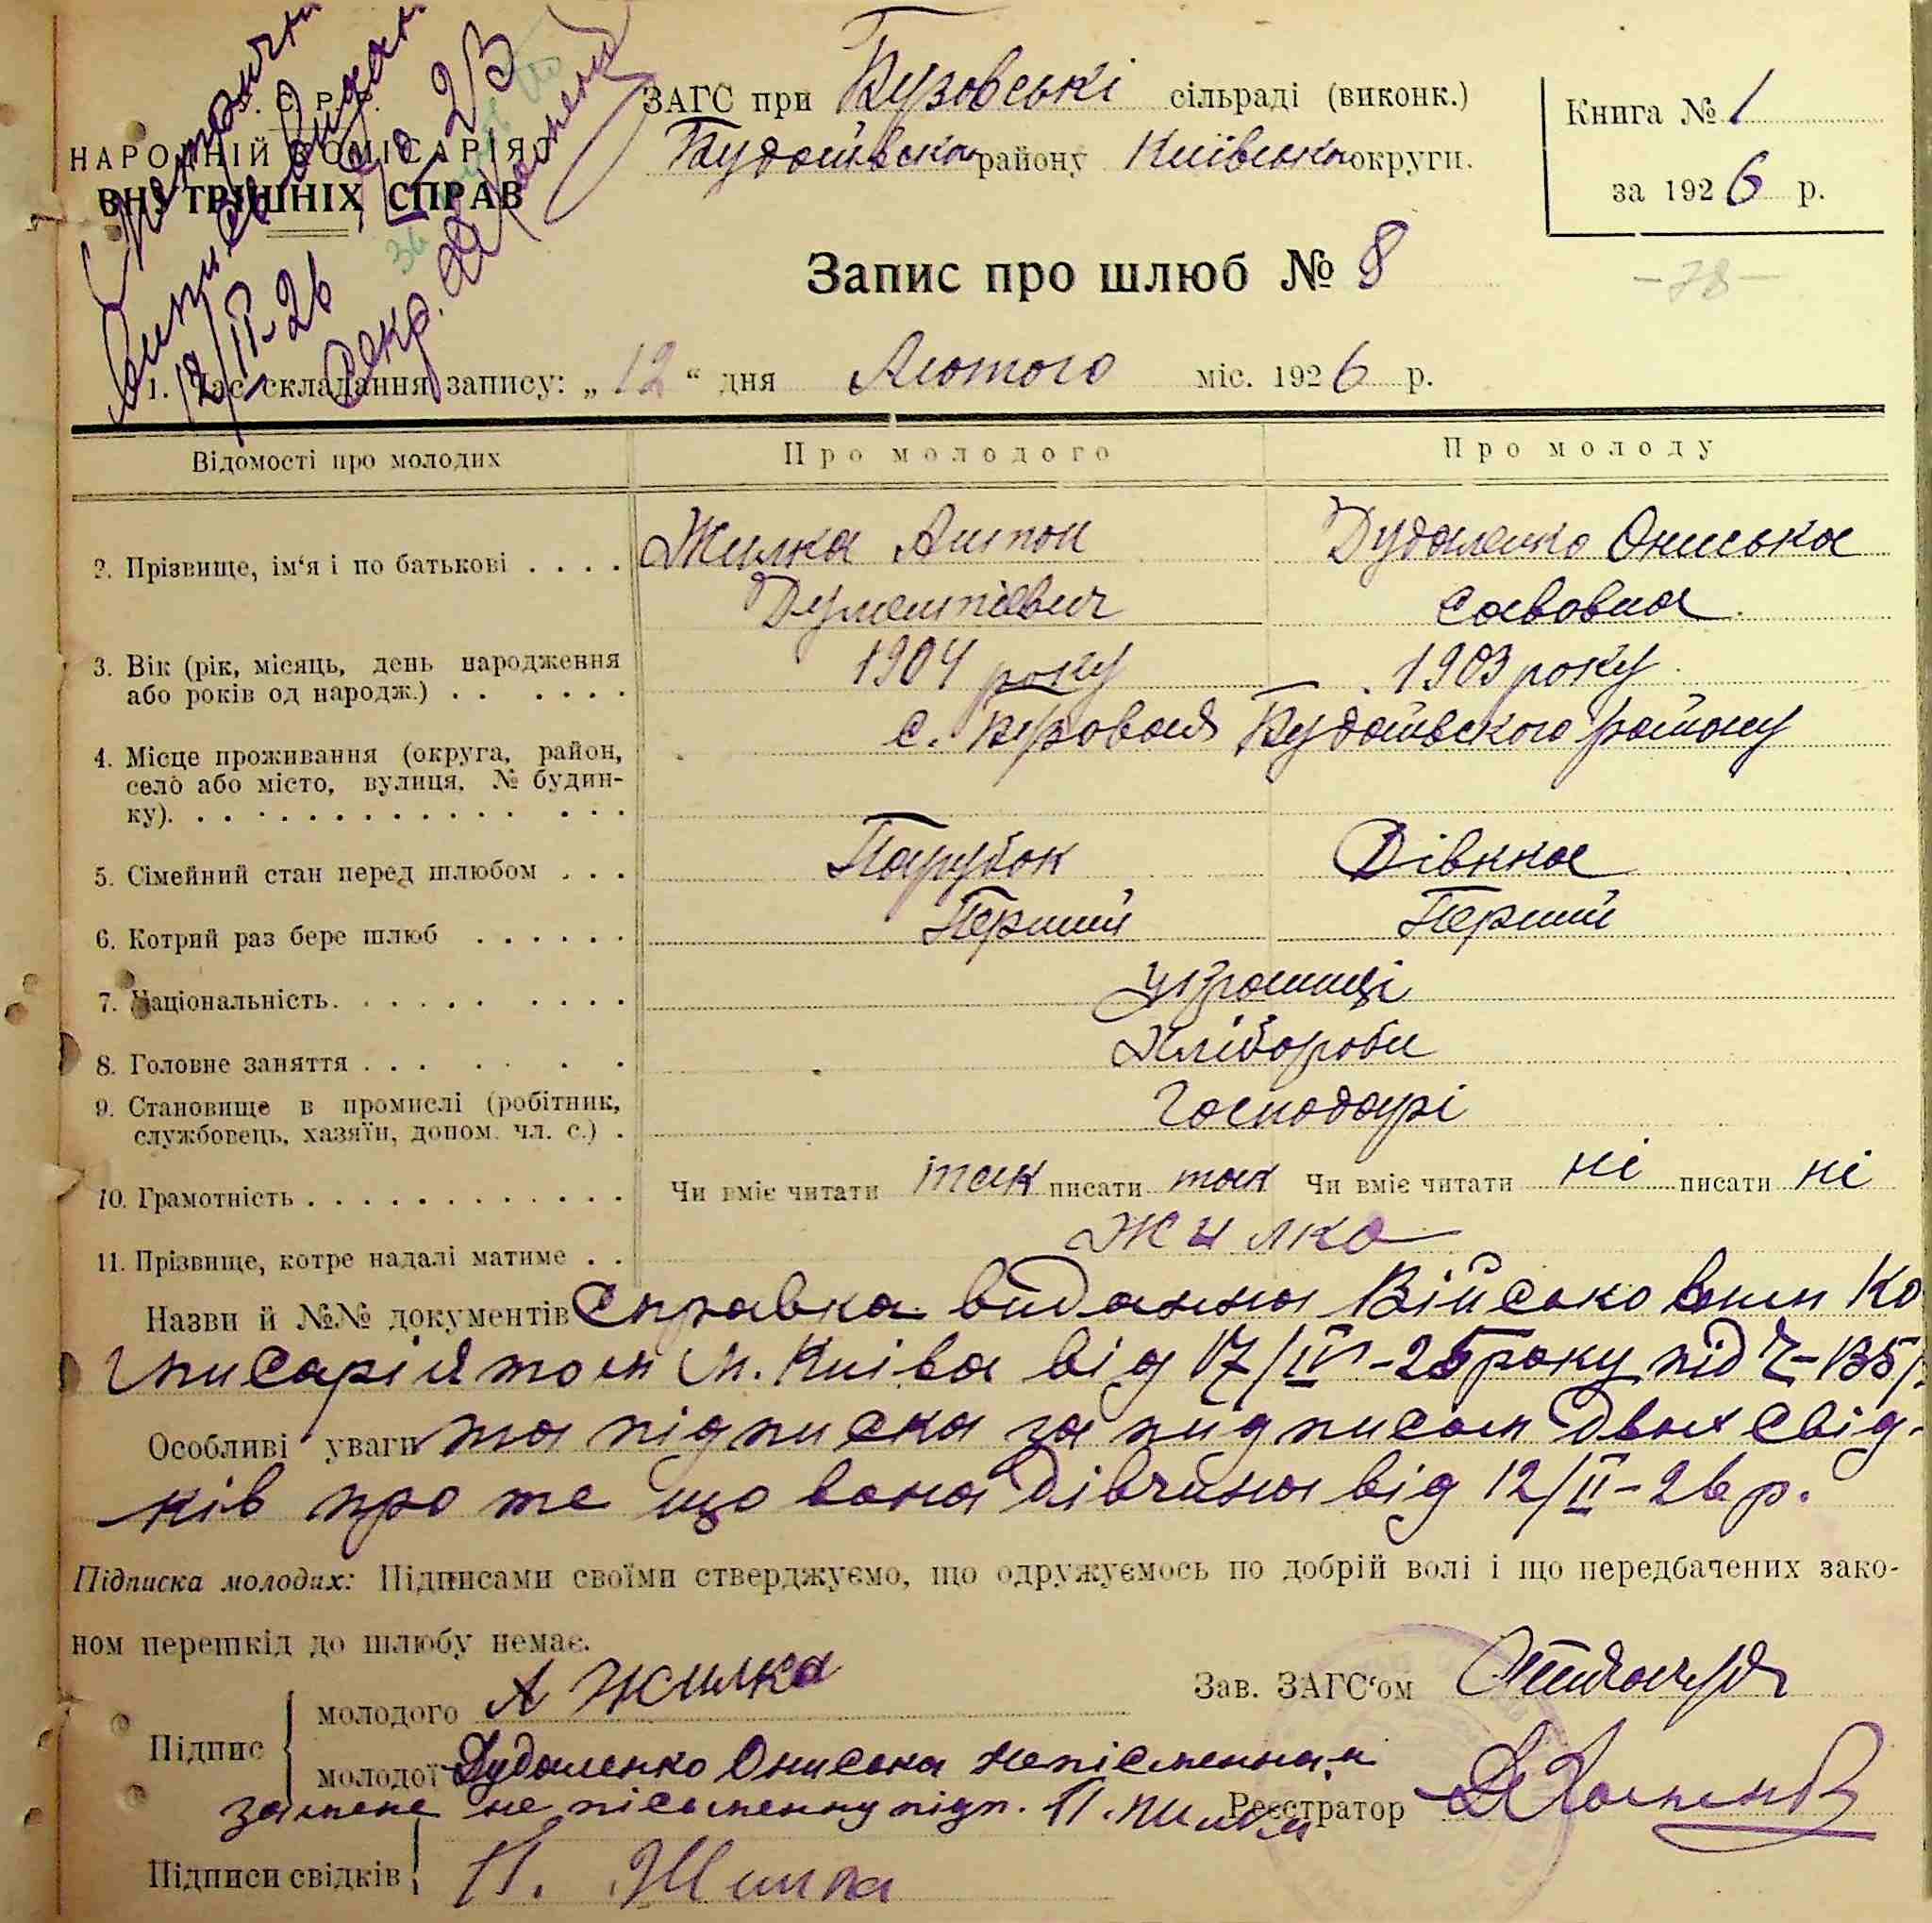 С. Р. Р.
НАРОДНІЙ КОМІСАРІЯТ
ВНУТРІШНІХ СПРАВ
ЗАГС при Бузовські сільраді (виконк.)
Будаївська району Київська округи.
Книга № 1
за 1926 р.
Запис про шлюб № 8
- 78 -
1. Час складання запису: „12“ дня Лютого міс. 1926 р.
Відомості про молодих Про молодого Про молоду
2. Прізвище, ім‘я і по батькові Жилка Антон Дудаленко Ониська
Дументієвич Савовна
3. Вік (рік, місяць, день народження 1904 року 1903 року
або років од народж.)
4. Місце проживання (округа, район, с. Бузовая Будаївського району
село або місто, вулиця, № будин-
ку).
5. Сімейний стан перед шлюбом Парубок Дівкна
6. Котрий раз бере шлюб Перший Перший
7. Національність. українці
8. Головне заняття Хлібороби
9. Становище в промислі (робітник, Господарі
службовець, хазяїн, допом. чл. с.)
10. Грамотність Чи вміє читати так писати так Чи вміє читати ні писати ні
11. Прізвище, котре надалі матиме Жилка
Назви й №№ документів Справка виданна Військовим Ко
місаріятом м. Київа від 17/IV-25 року під Ч-135
Особливі уваги та підписка за підписом двох свід-
ків про те що вона дівчина від 12/II-26 р.
Підписка молодих: Підписами своїми стверджуємо, що одружуємось по добрій волі і що передбачених зако-
ном перешкід до шлюбу немає.
Підпис
молодого А Жилка
Зав. ЗАГС‘ом
молодої Дудаленко Ониська непісменная
за мене не пісьменну підп. П. Жилка
Реєстратор
Підписи свідків П. Жилка